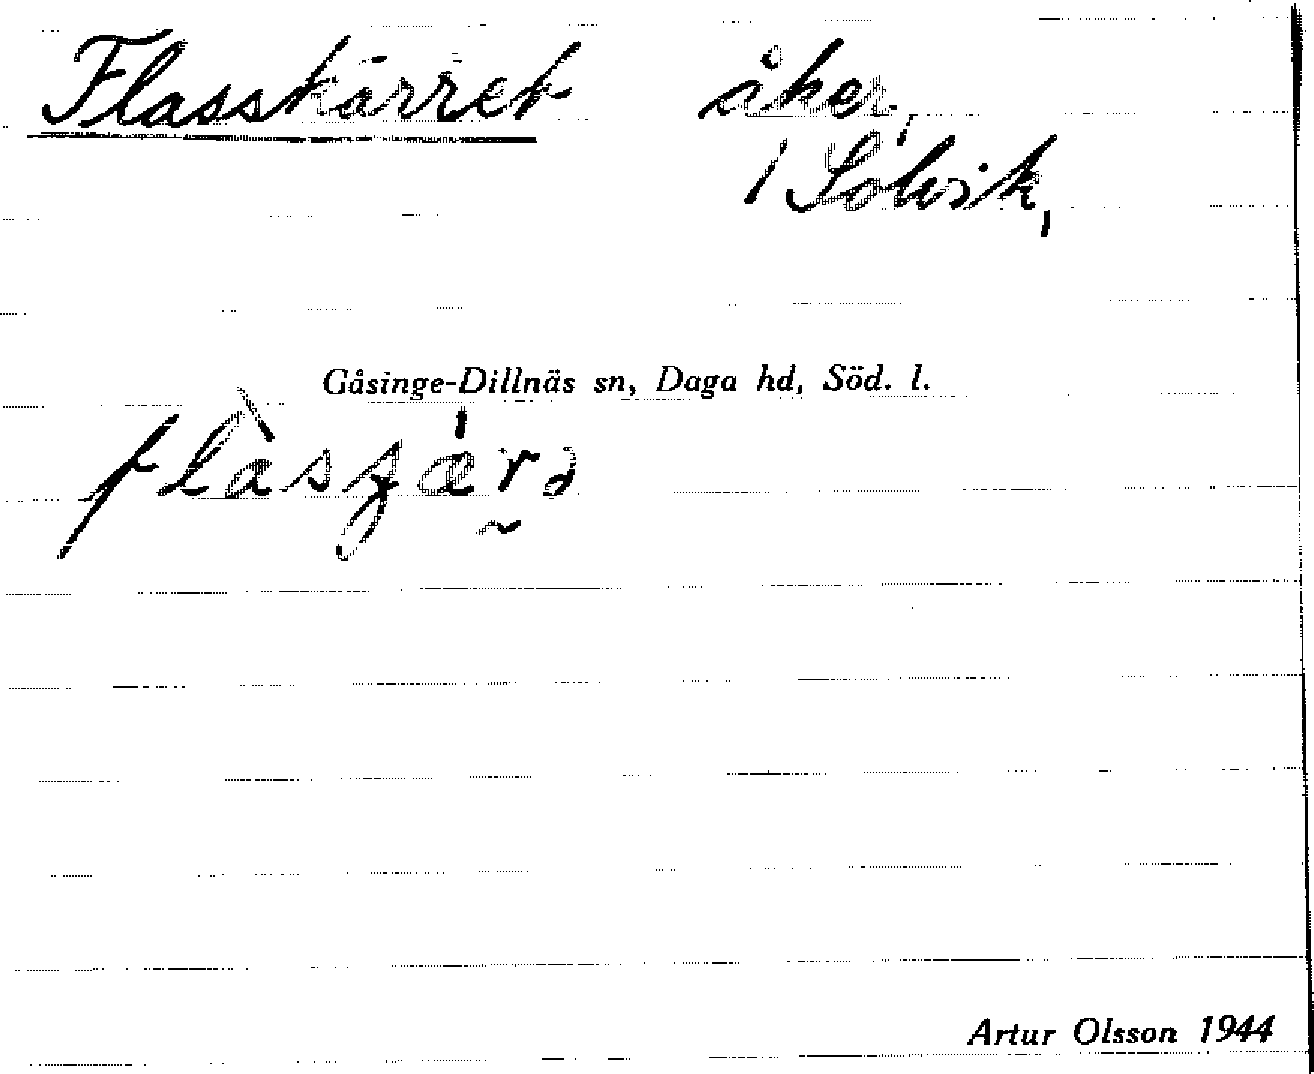 Flasskärret åker,
i Solvik,
Gåsinge-Dillnäs sn, Daga hd, Söd. l.
Artur Olsson 1944